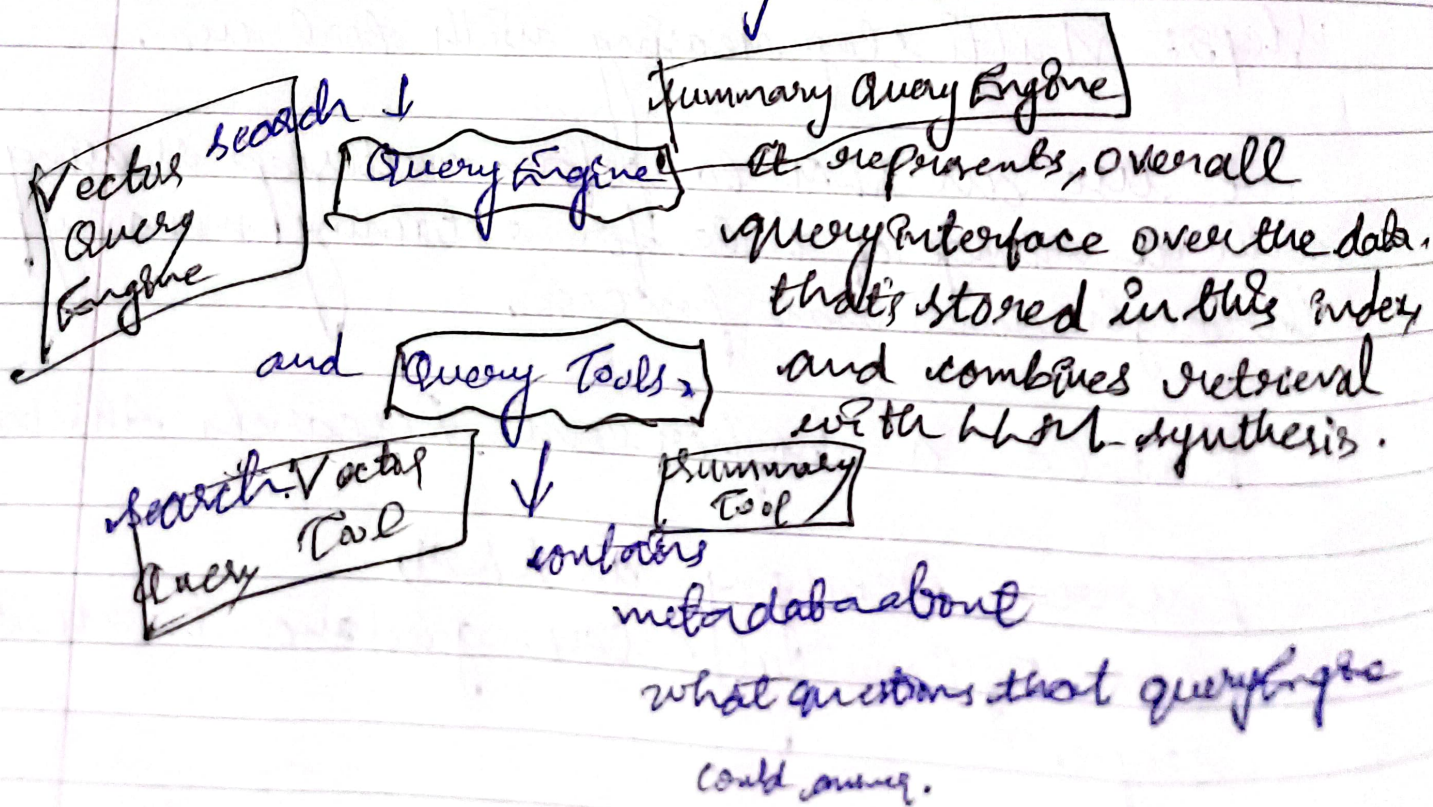 Summary Query Engine
search ↓
Vector
Query
Engine
Query Engine
It represents, overall
query interface over the data.
that's stored in this index,
and combines retrieval
with LLM synthesis.
and Query Tools,
search Vector
Query Tool
Summary
Tool
contains
metadata about
what questions that query Engine
could answer.